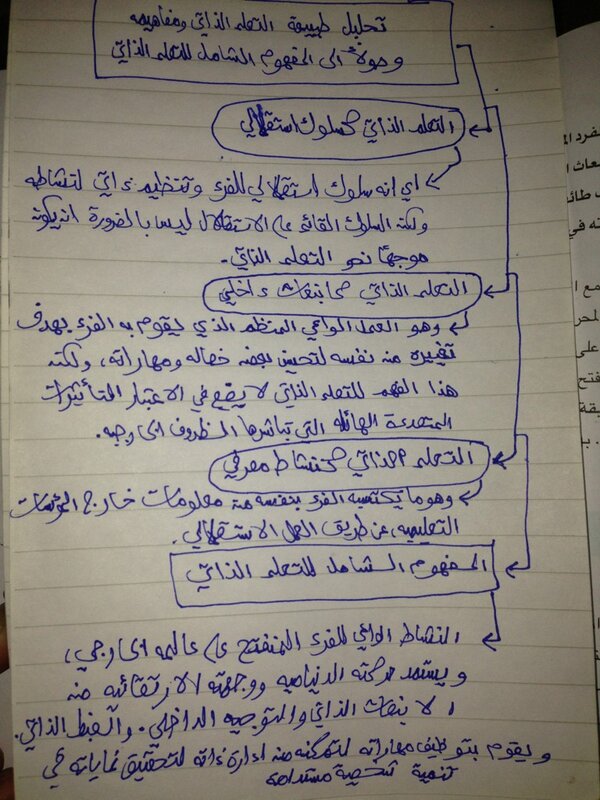 تحليل طبيعة التعلم الذاتي ومفاهيمه
وصولاً الى المفهوم الشامل للتعلم الذاتي
التعلم الذاتي كسلوك استقلالي
اي انه سلوك استقلالي للفرد وتنظيم ذاتي لنشاطه
ولكن السلوك القائم على الاستقلال ليس بالضرورة ان يكون
موجهاً نحو التعلم الذاتي.
التعلم الذاتي كانبعاث داخلي
وهو العمل الواعي المنظم الذي يقوم به الفرد بهدف
تغييره من نفسه لتحسين بعض خصاله ومهاراته، ولكن
هذا الفهم للتعلم الذاتي لا يضع في الاعتبار التأثيرات
المتعددة الهائلة التي تباشرها الظروف الخارجيه.
التعلم الذاتي كنشاط معرفي
وهو ما يكتسبه الفرد بنفسه من معلومات خارج المؤسسات
التعليميه، عن طريق العمل الاستقلالي.
المفهوم الشامل للتعلم الذاتي
النشاط الواعي للفرد المنفتح على عالمه الخارجي،
ويستمد حركته الديناميه ووجهته الارتقائيه من
الانبعاث الذاتي والتوجيه الداخلي. والضبط الذاتي.
ويقوم بتوظيف مهاراته لتمكنه من ادارة ذاته لتحقيق غاياته في
تنمية شخصية مستدامه
مفرد
معات
طائ
ته في
مع ا
لمحر
على
فتح
يقة
. بـ